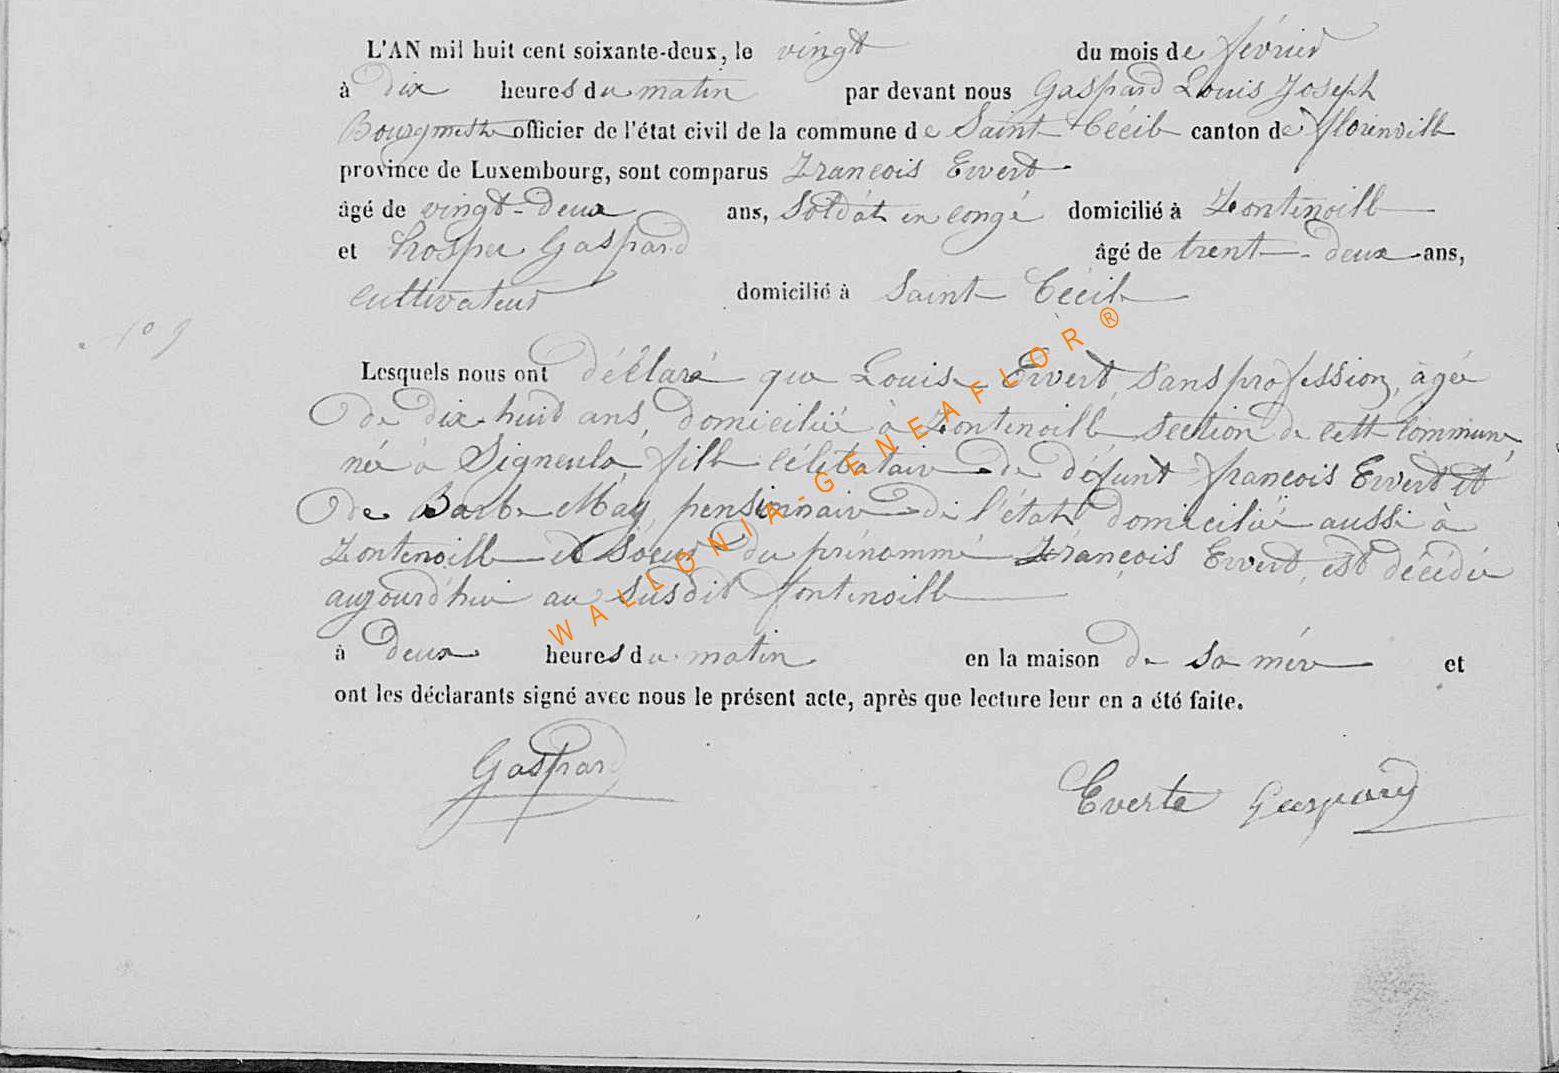 L'AN mil huit cent soixante-deux, le vingt du mois de février
à dix heures du matin par devant nous Gaspard Louis Joseph
Bourgmestre officier de l'état civil de la commune de Saint Cécile canton de florenville
province de Luxembourg, sont comparus François Evert
âgé de vingt-deux ans, Soldat en congé domicilié à Fontenoille
et Prosper Gaspard âgé de trente-deux ans,
cultivateur domicilié à Saint Cécile
N° 9
Lesquels nous ont déclaré que Louise Evert, sans profession, âgée
de dix-huit ans, domiciliée à Fontenoille section de cette commune
née à Signeulx, fille célibataire de défunt françois Evert et
de Barbe May, pensionnaire de l'état domiciliée aussi à
Fontenoille et soeur du prénommé François Evert, est décédée
aujourd'hui au susdit fontenoille
à deux heures du matin en la maison de sa mère et
ont les déclarants signé avec nous le présent acte, après que lecture leur en a été faite.
Gaspard Everte Gaspard
WALLONIA-GENEAFLOR ®